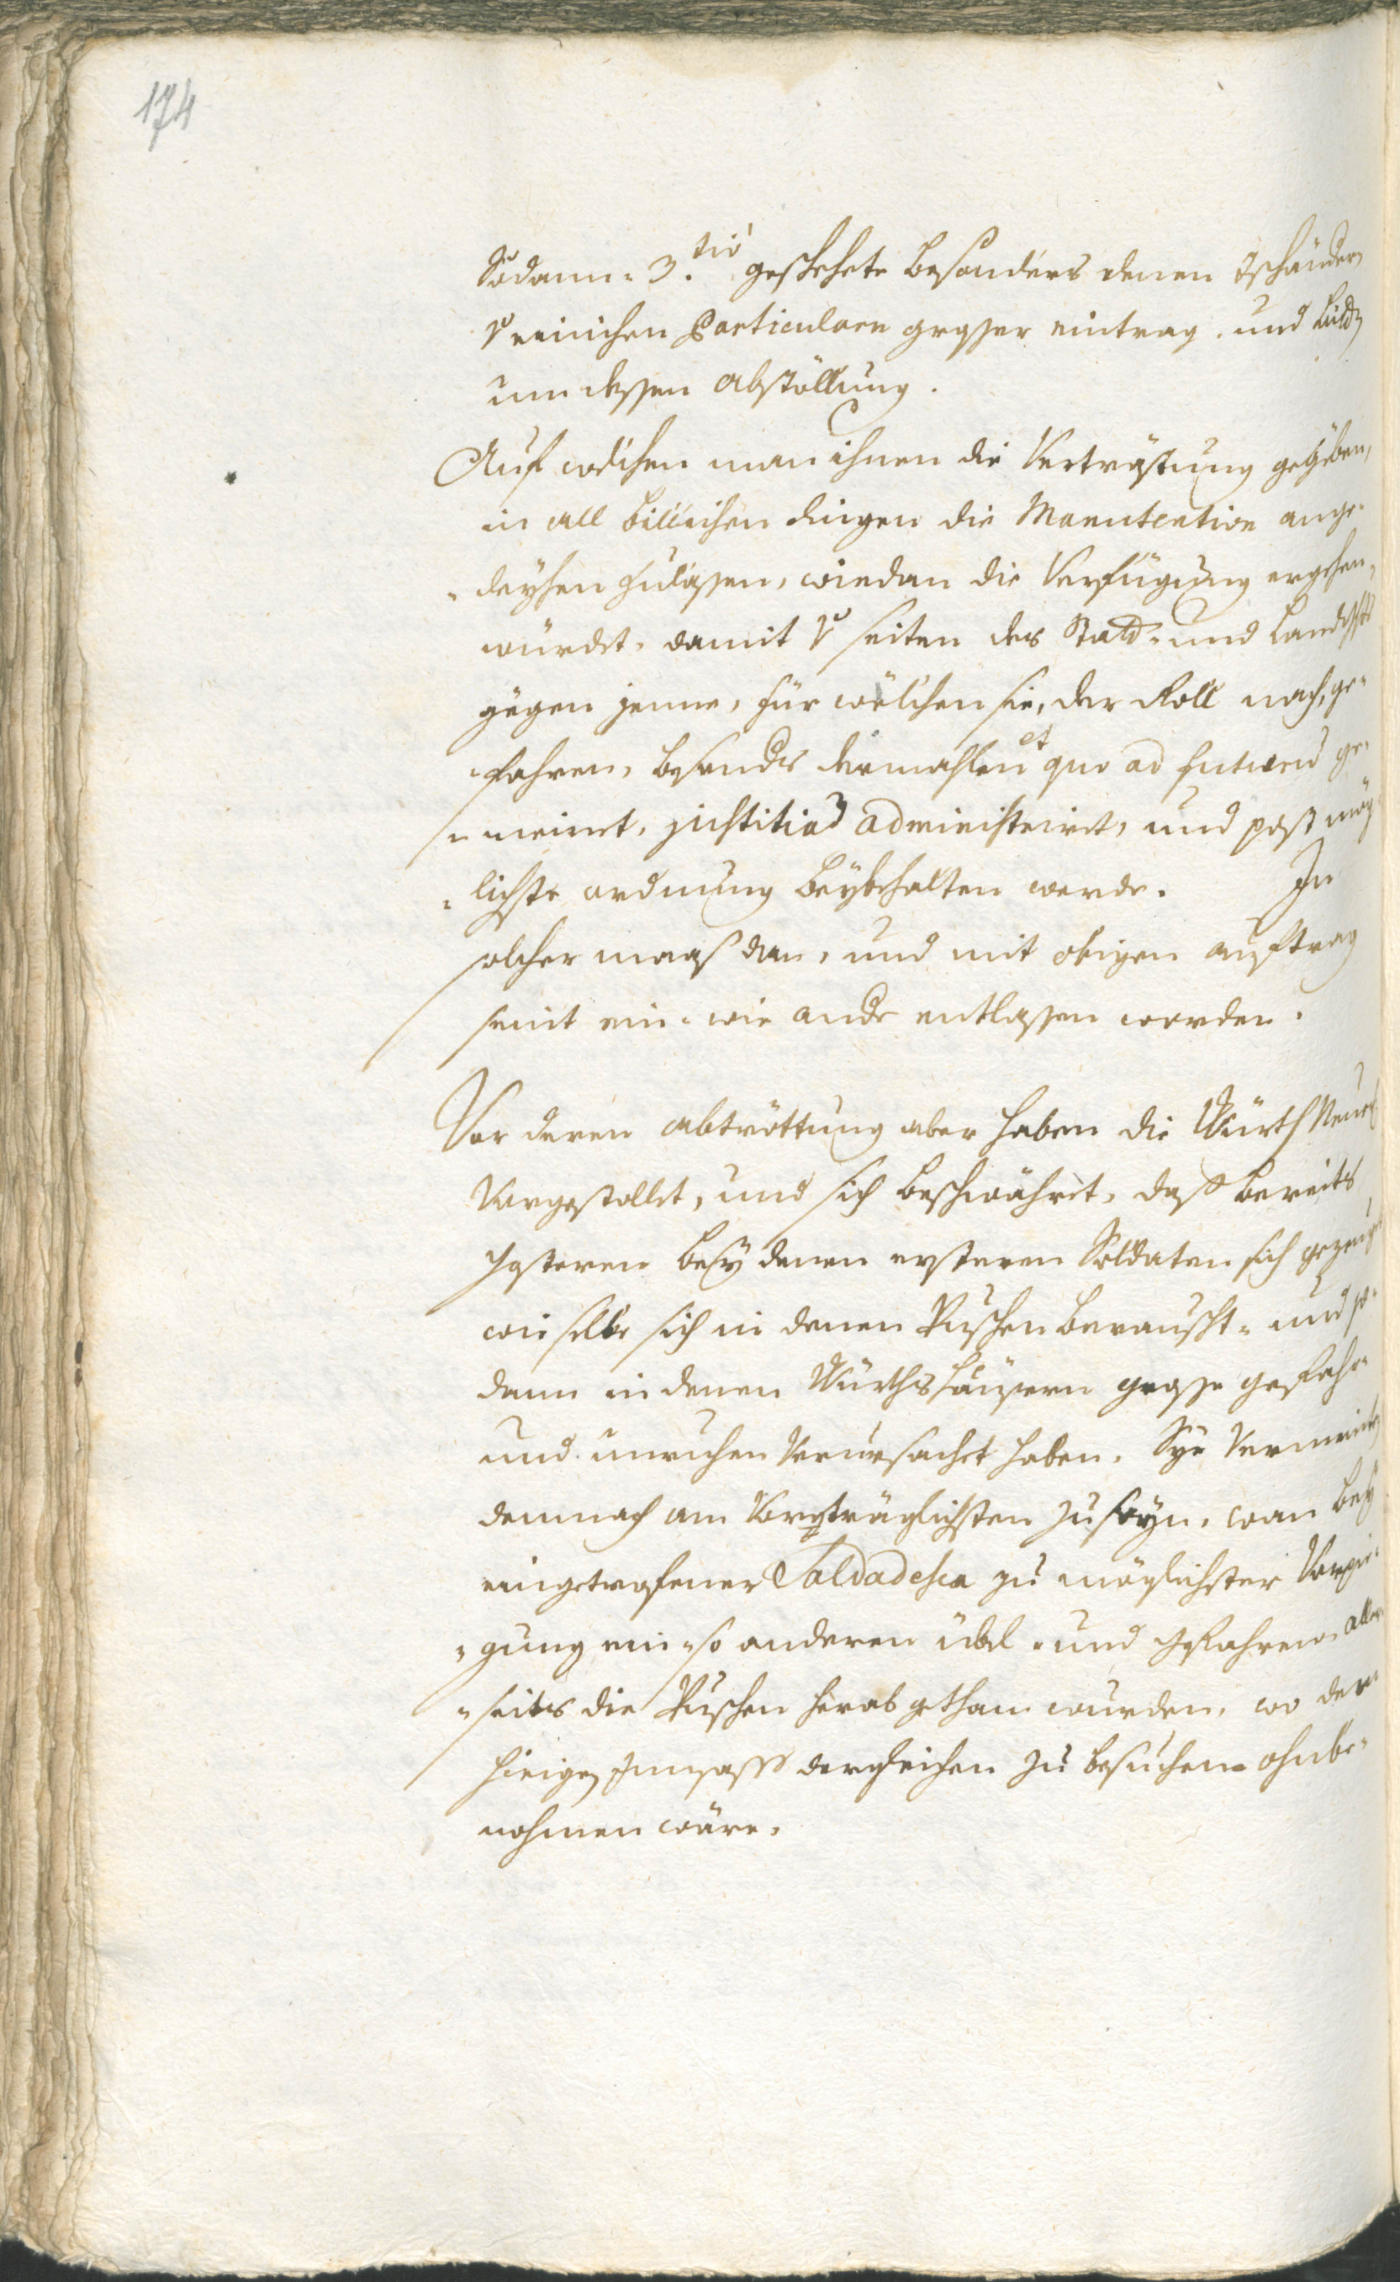 174
Sodann 3.tio geschehete besonders denen Tschänder
einichen Particularn grosser eintrag. und
um dessen abstöllung.
Auf welchen man ihnen die Vertröstung gegeben,
in all billichen dingen die Manutention ange-
-deyhen zulassen, wiedan die Verfügung ergehen
würdet, damit seiten des Stadt- und Landtsgts
gegen jenne, für welchen sie, der Roll nach, ge-
-fahren, besonds dermahlen et quo ad futurum ge-
-meinet, justitiam administriret, und post mög
-lichste ordnung beybehalten werde. In
solcher maaß dan, und mit obigen auftrag
seint ein- wie ande entlassen worden.
Vor deren abtröttung aber haben die Würth
Vorgestellet, und sich beschwähret, daß bereits
gesteren bey denen ersteren Soldaten sich gezeigt
wie selbe sich in denen Puschen berauscht- und so-
dann in denen Würthshäusern grosse gefahr-
und unruhen Verursachet haben. Sye Vermeinten
demnach am Vorträglichsten zuseyn, wan bey
eingetrofener Soldadesca zu möglichster Vorpie-
-gung ein- so anderen übel- und gefahren aller-
-seits die Puschen herab gethan wurden, wo den
hieigen Innsass dergleichen zu besuchen ohnbe-
nohmen wäre.